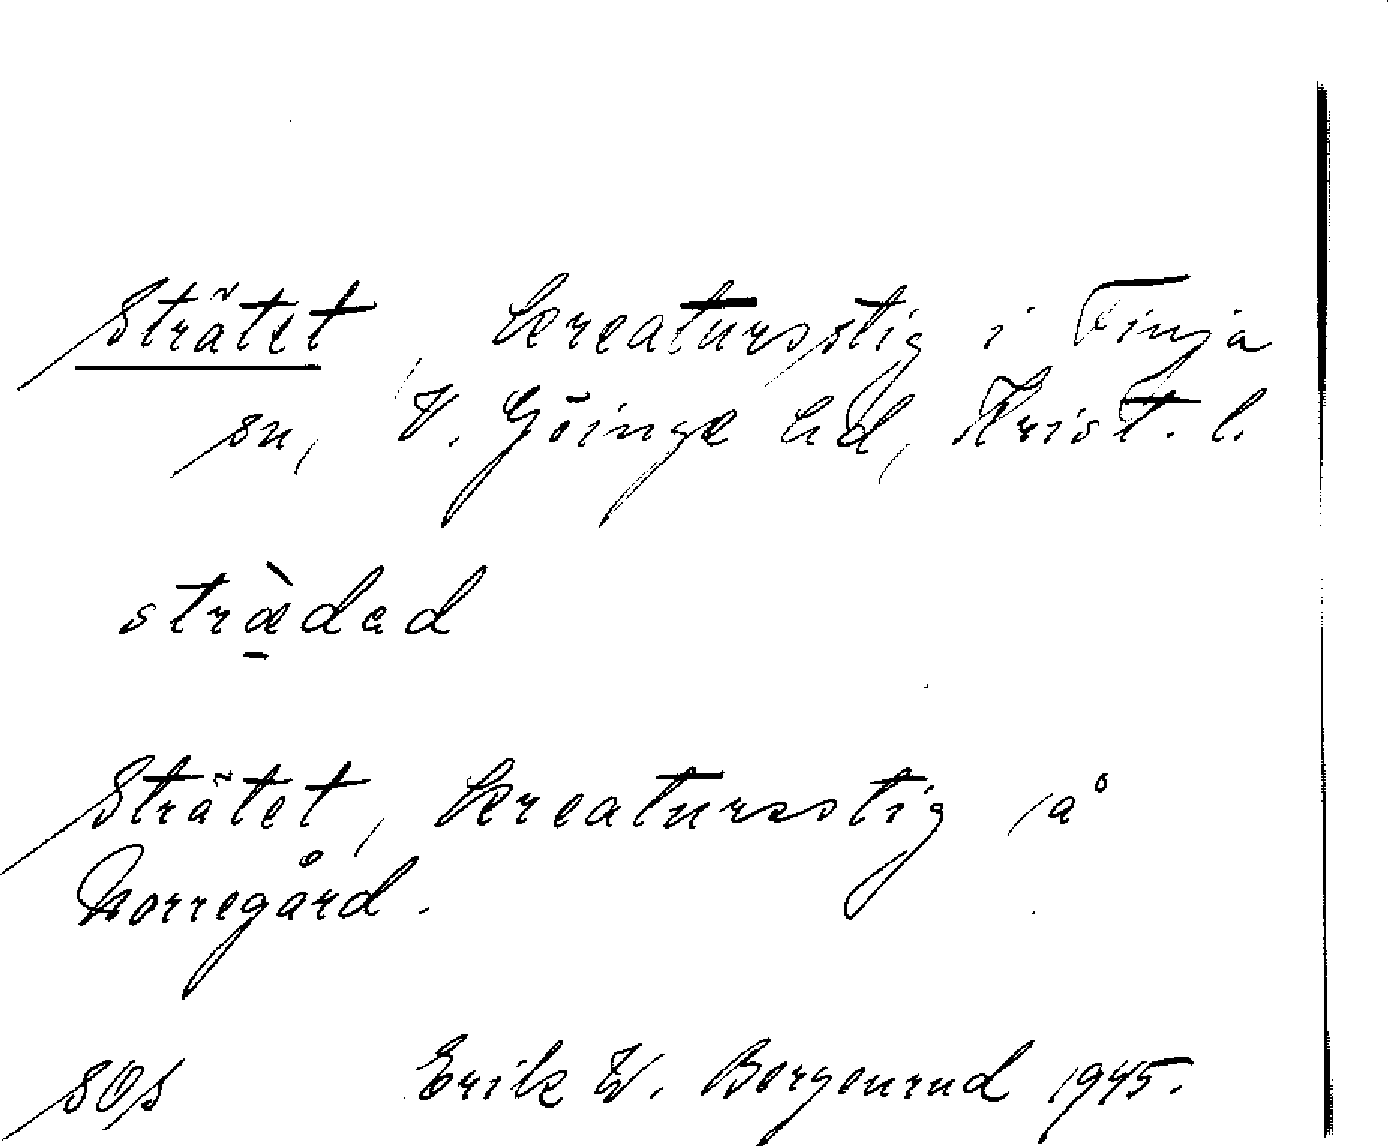 Strätet, kreatursstig i Finja
sn, V. Göinge hd, Krist. l.
stræ̠̀dad
Strätet, kreatursstig å
Norregård.
SOS Erik W. Bergenrud 1945.